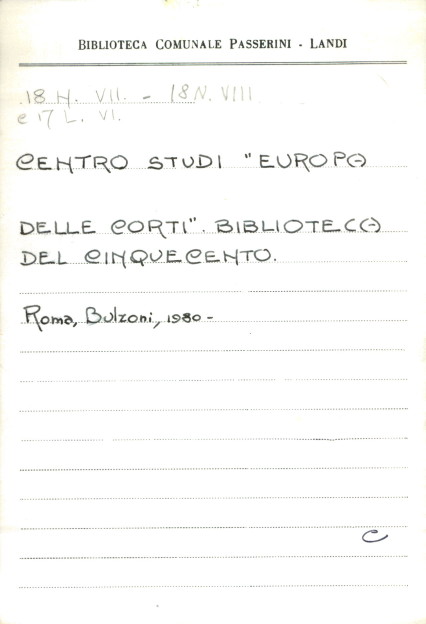 BIBLIOTECA COMUNALE PASSERINI - LANDI
18 H. VII. - 18 N. VIII
e 17 L. VI.
CENTRO STUDI "EUROPA
DELLE CORTI". BIBLIOTECA
DEL CINQUECENTO.
Roma, Bulzoni, 1980 -
C